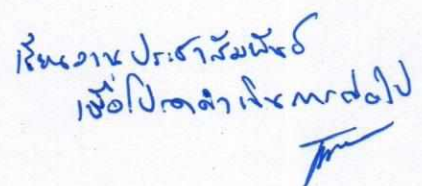 เรียนงานประชาสัมพันธ์
เพื่อโปรดดำเนินการต่อไป